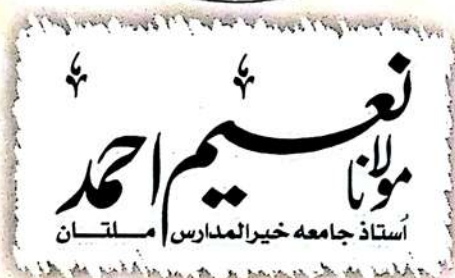 مولانا نعیم احمد
أستاذ جامعه خیرالمدارس ملتان